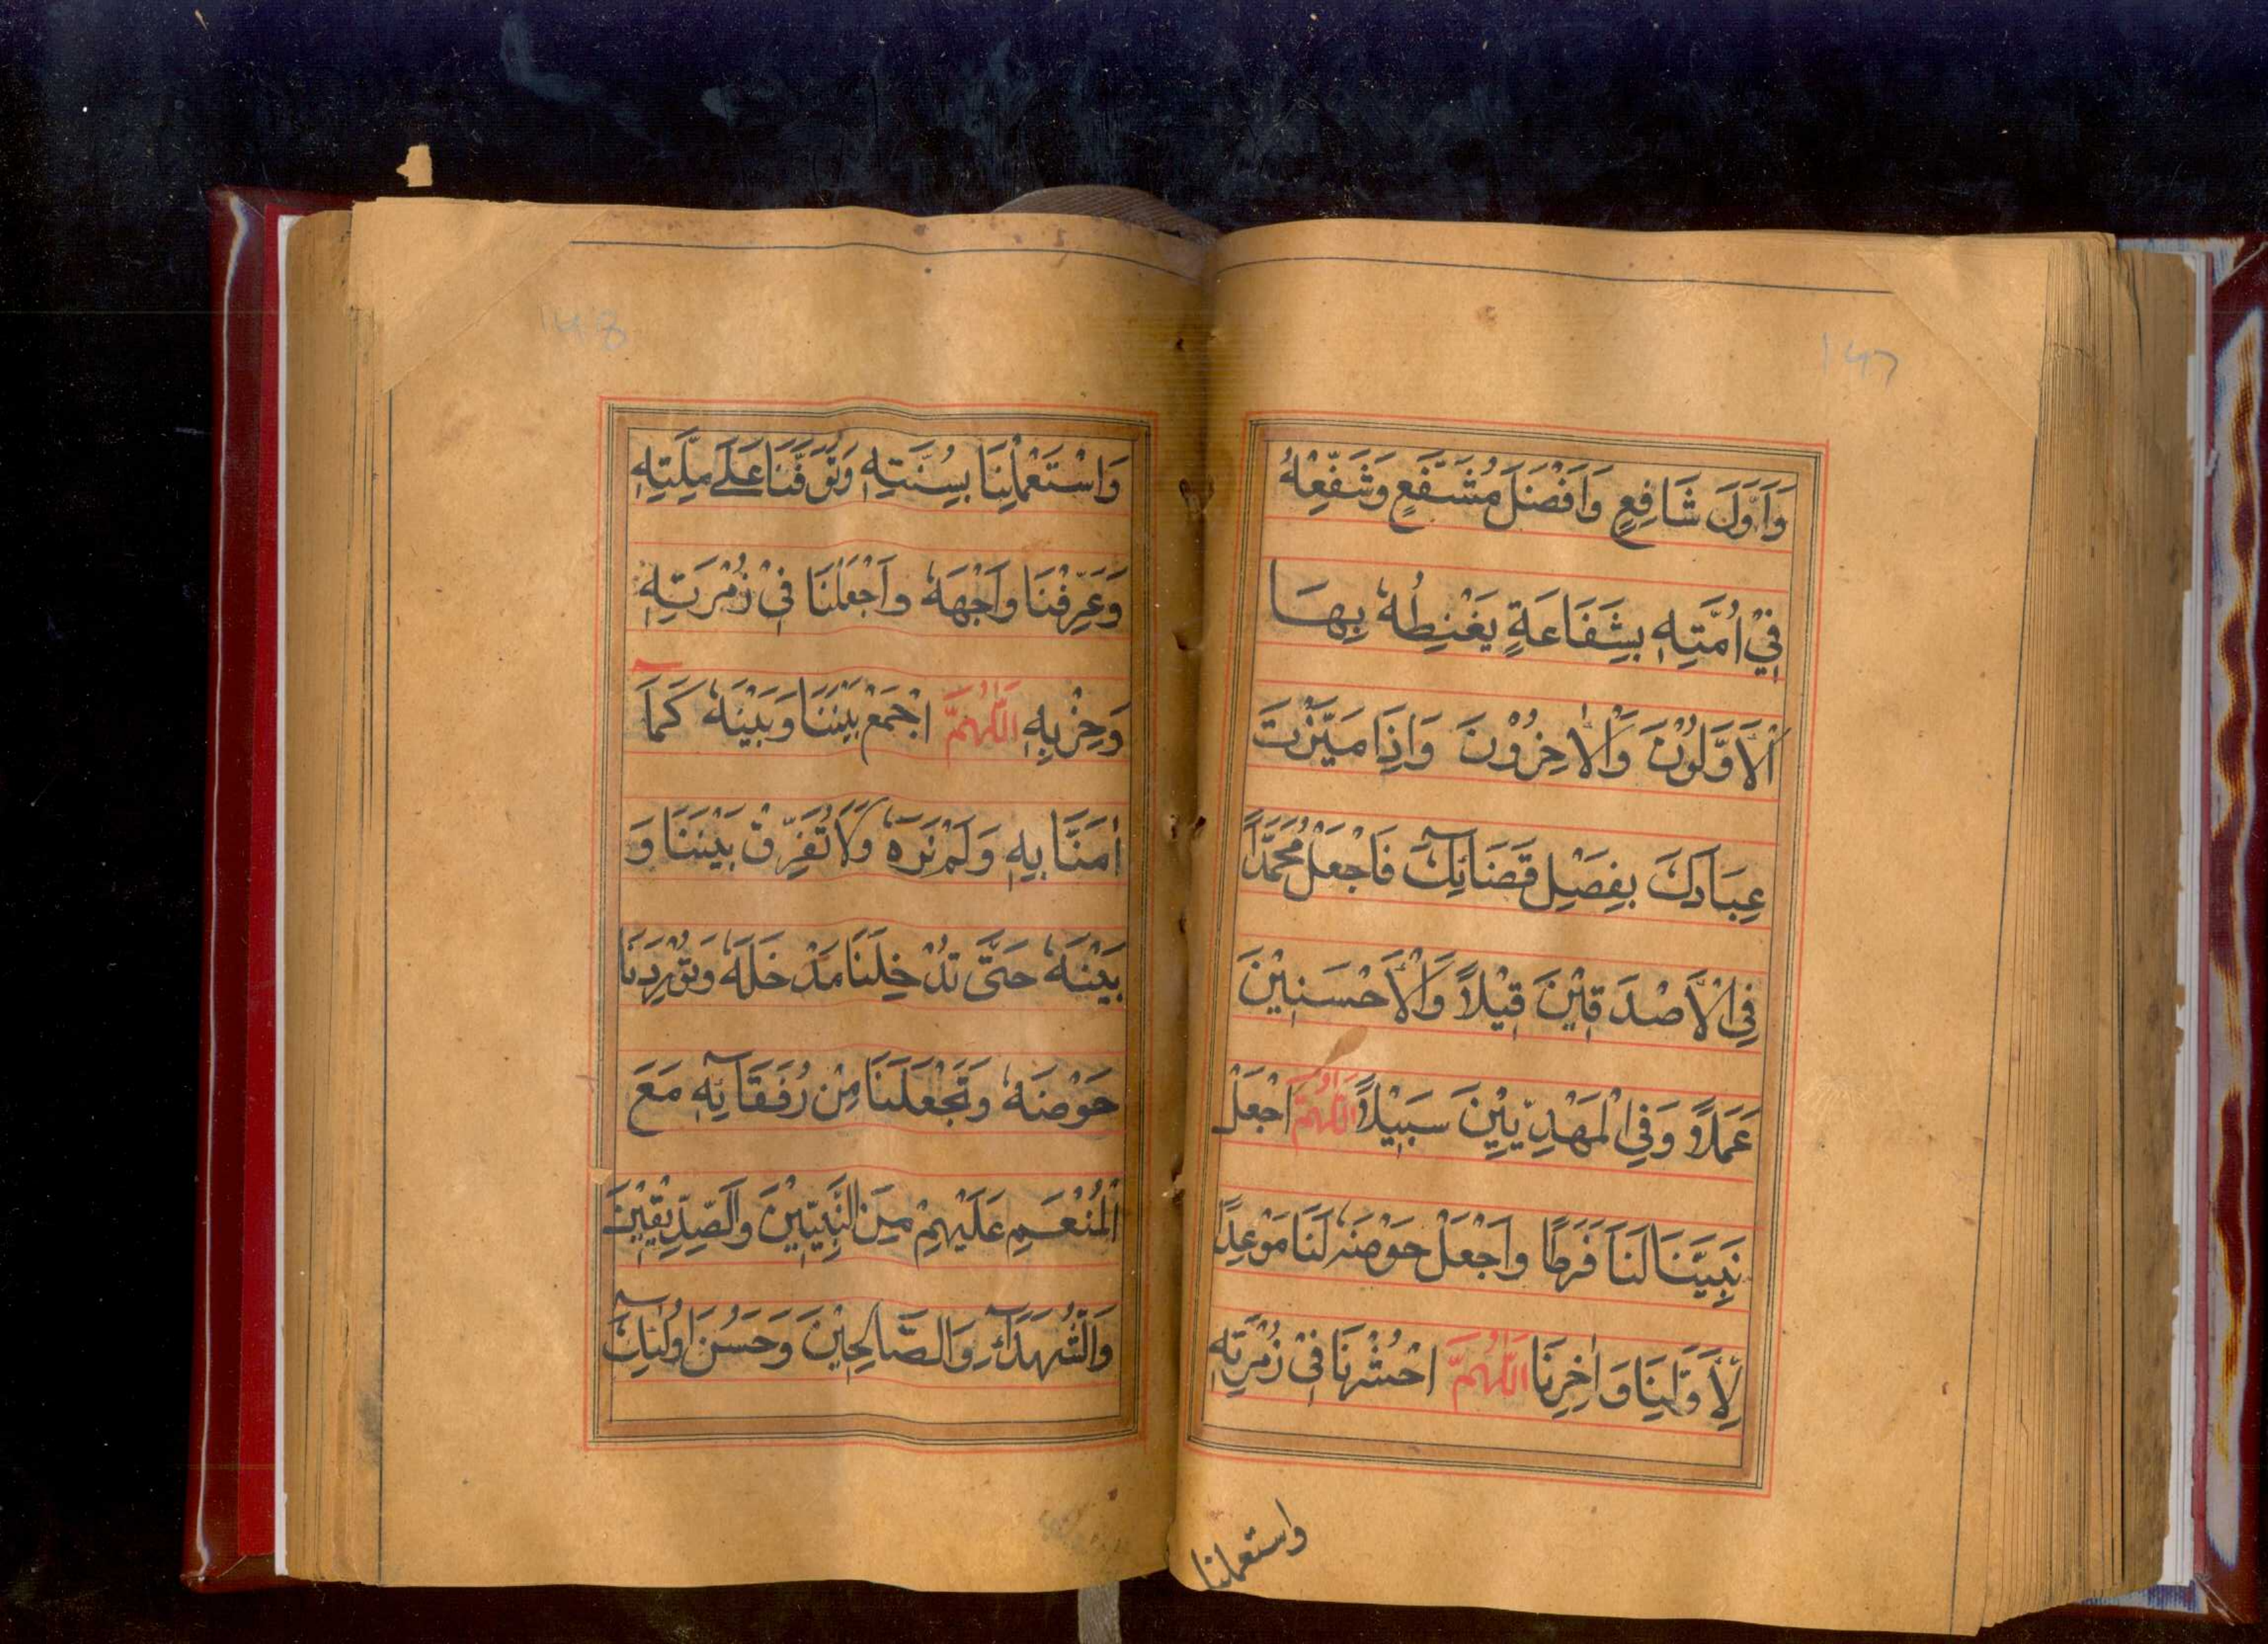 147
وَاَوَّلَ شَافِعٍ وَاَفْضَلَ مُشَفَّعٍ وَشَفِّعْهُ
فِيْ اُمَّتِهٖ بِشَفَاعَةٍ يَغْبِطُهٗ بِهَا
الْاَوَّلُوْنَ وَالْاٰخِرُوْنَ وَاِذَا مَيَّزْتَ
عِبَادَكَ بِفَصْلِ قَضَائِكَ فَاجْعَلْ مُحَمَّدًا
فِي الْاَصْدَقِيْنَ قِيْلًا وَالْاَحْسَنِيْنَ
عَمَلًا وَفِي الْمَهْدِيِّيْنَ سَبِيْلًا اَللّٰهُمَّ اجْعَلْ
نَبِيَّنَا لَنَا فَرَطًا وَاجْعَلْ حَوْضَهٗ لَنَا مَوْعِدًا
لِاَوَّلِنَا وَاٰخِرِنَا اَللّٰهُمَّ احْشُرْنَا فِيْ زُمْرَتِهٖ
واستعملنا
148
وَاسْتَعْمِلْنَا بِسُنَّتِهٖ وَتَوَفَّنَا عَلٰى مِلَّتِهٖ
وَعَرِّفْنَا وَجْهَهٗ وَاجْعَلْنَا فِيْ زُمْرَتِهٖ
وَحِزْبِهٖ اَللّٰهُمَّ اجْمَعْ بَيْنَنَا وَبَيْنَهٗ كَمَا
اٰمَنَّا بِهٖ وَلَمْ نَرَهٗ وَلَا تُفَرِّقْ بَيْنَنَا وَ
بَيْنَهٗ حَتّٰى تُدْخِلَنَا مَدْخَلَهٗ وَتُوْرِدَنَا
حَوْضَهٗ وَتَجْعَلَنَا مِنْ رُفَقَائِهٖ مَعَ
الْمُنْعَمِ عَلَيْهِمْ مِنَ النَّبِيِّيْنَ وَالصِّدِّيْقِيْنَ
وَالشُّهَدَآءِ وَالصَّالِحِيْنَ وَحَسُنَ اُولٰٓئِكَ